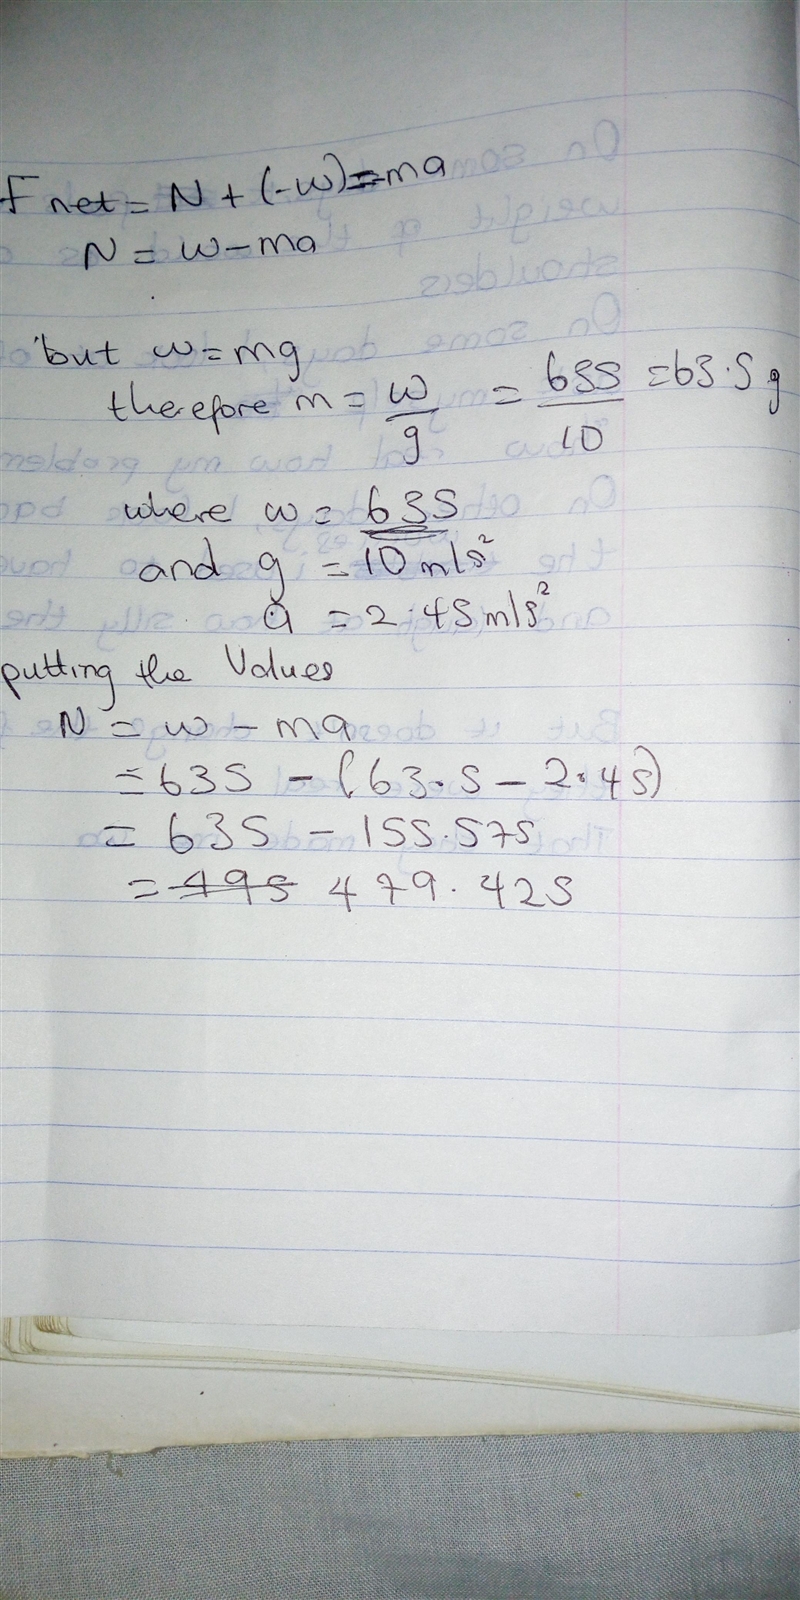 Fnet = N + (-w) = ma
N = w - ma
but w = mg
therefore m = w/g = 635/10 = 63.5g
where w = 635
and g = 10 m/s²
a = 2.45 m/s²
putting the Values
N = w - ma
= 635 - (63.5 - 2.45)
= 635 - 155.575
= 495 479.425